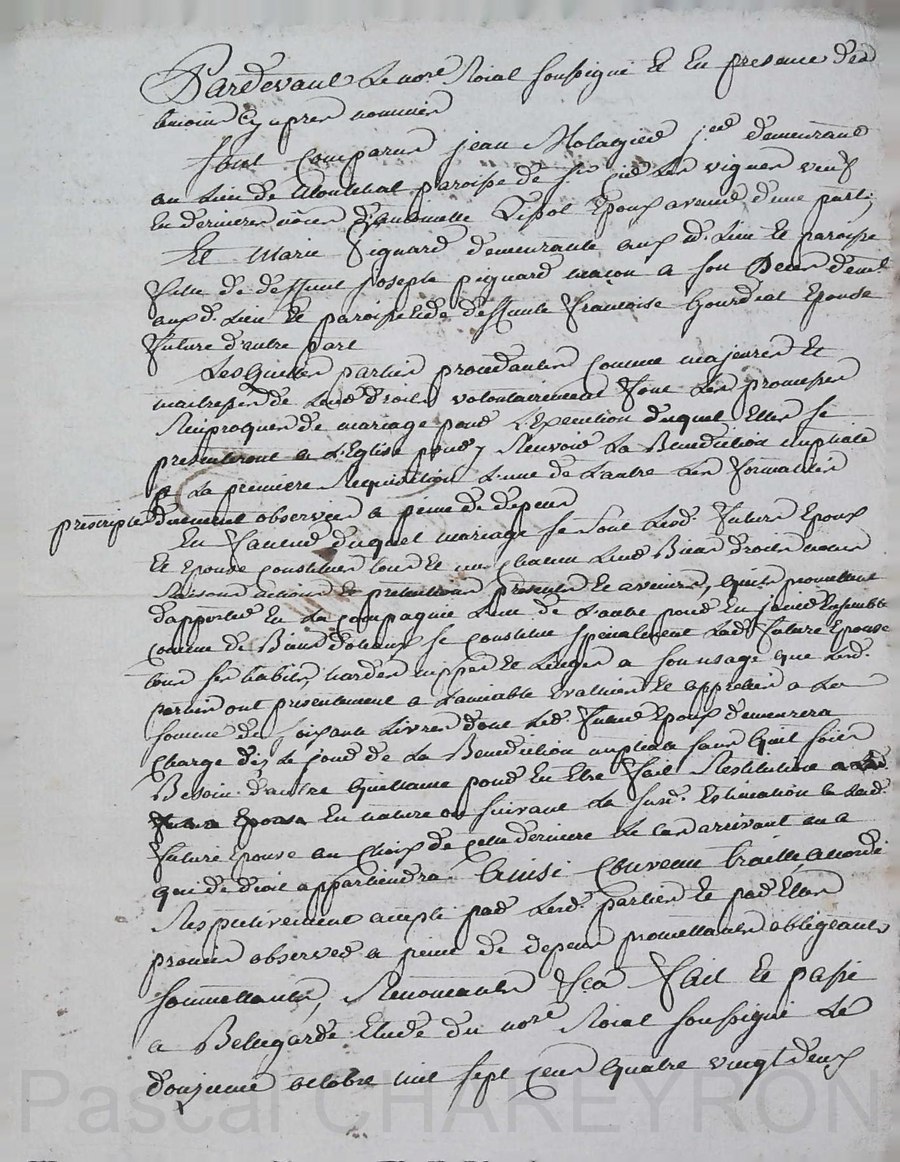 Pardevant Le nore Roial soussigné et en presence des
temoins cy apres nommés
Sont comparus jean Molagier j.er demeurant
au lieu de Montchal paroisse de St Les vignes veuf
en dernieres nôces d'antoinette Epoux avenir d'une part,
Et Marie Pignard demeurante aux d. lieu et paroisse
fille de deffunt joseph pignard maçon a son Deces dem.t
aux d. lieu et paroisse et de deffunte françoise Gourdiat Epouse
future d'autre part
Lesquelles parties procedantes comme majeures et
maitresses de leurs droits volontairement font les promesses
Reciproques de mariage pour L'Execution duquel Elles se
presenteront a L'Eglise pour y Recevoir La Benediction nuptiale
a La premiere Requisition L'une de Lautre Les formalités
prescriptes duement observées a peine de depens
En faveur duquel mariage se sont Lesd. futurs Epoux
Et Epouse constitués tous et un chacun Leurs Biens droits noms
Raisons actions et pretentions presents et avenirs, quils promettent
d'apporter En La compagnie L'un de Lautre pour En jouir Ensemble
comme de Biens dotaux se constitue specialement Lad. future Epouse
tous ses habits, hardes nippes et Linges a son usage que Lesd.
parties ont presentement a Lamiable Evalués et appretiés a La
somme de soixante Livres dont Led. futur Epoux demeurera
chargé dès Le jour de La Benediction nuptiale sans quil soit
Besoin d'autre quittance pour En Etre fait Restitution a Lad.
future Epouse En nature ou suivant La susd. Estimation a Lad.
future Epouse au choix de cette derniere Le cas arrivant ou a
qui de droit appartiendra Ainsi Convenu traitté, accordé
Respectivement accepté par Lesd. parties et par Elles
promis observer a peine de depens promettantes obligeantes
soumettantes, Renonceantes &ca fait et passé
a Bellegarde Etude du nore Roial soussigné Le
douzieme octobre mil sept cent quatre vingt deux
Pascal CHAREYRON